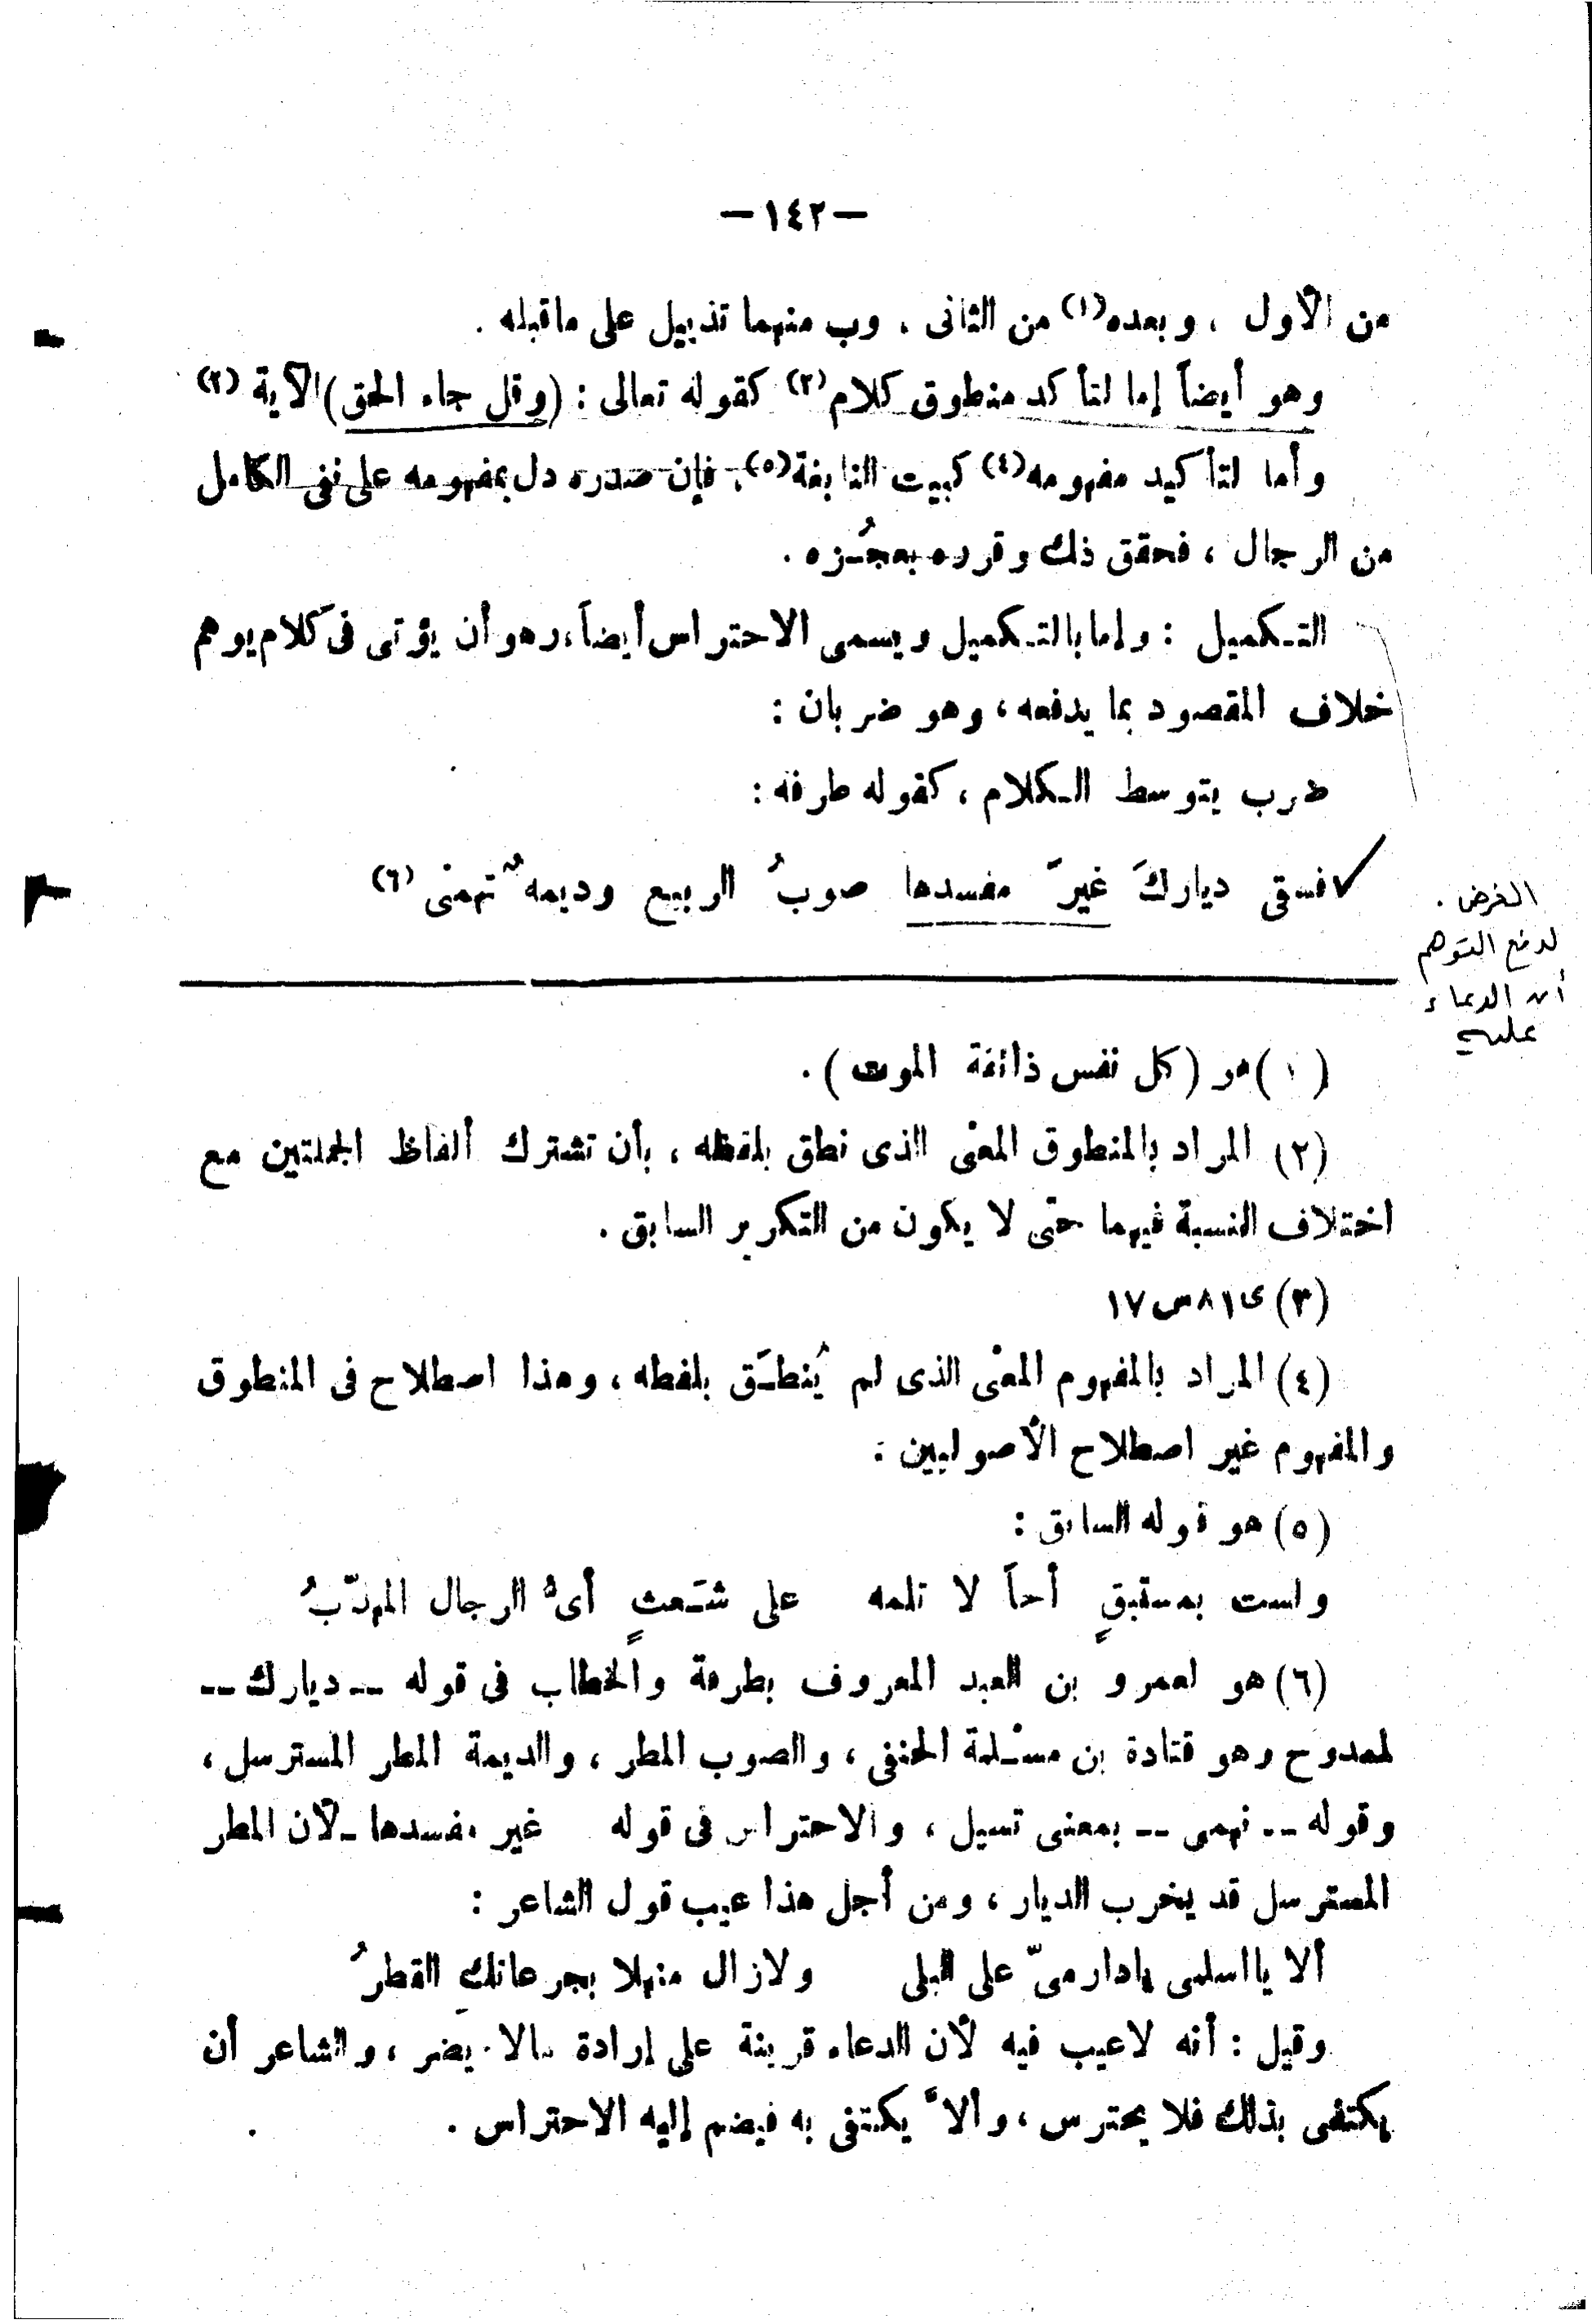 —١٤٢—
من الأول ، وبعده(١) من الثانى . وب منهما تذييل على ماقبله .
وهو أيضاً إما لتأكد منطوق كلام(٢) كقوله تعالى : (وقل جاء الحق) الآية (٣)
وأما لتأكيد مفهومه(٤) كبيت النابغة(٥)، فإن صدره دل بمفهومه على نفى الكامل
من الرجال ، فحقق ذلك وقرره بعجُـزه .
التـكميل : وإما بالتـكميل ويسمى الاحتراس أيضاً، وهو أن يؤتى فى كلام يوهم
خلاف المقصود بما يدفعه ، وهو ضربان :
ضرب يتوسط الـكلام ، كقوله طرفه :
✓ فسقى دياركَ غيرَ مفسدها صوبُ الربيع وديمهٌ تهمنى (٦)
الغرض .
لدفع التوهم
أن الدعاء
عليه
(١) هو (كل نفس ذائقة الموت) .
(٢) المراد بالمنطوق المعنى الذى نطق بلفظه ، بأن تشترك ألفاظ الجملتين مع
اختلاف النسبة فيهما حتى لا يكون من التكرير السابق .
(٣) ى ٨١ س ١٧
(٤) المراد بالمفهوم المعنى الذى لم يُنطـَق بلفظه ، وهذا اصطلاح فى المنطوق
والمفهوم غير اصطلاح الأصوليين :
(٥) هو قوله السابق :
ولست بمستبقٍ أخاً لا تلمه على شـَعثٍ أىُّ الرجال المهذّبُ
(٦) هو لعمرو بن العبد المعروف بطرفة والخطاب فى قوله -- ديارك --
لممدوح وهو قتادة بن مسـْلمة الحنفى ، والصوب المطر ، والديمة المطر المسترسل ،
وقوله -- تهمى -- بمعنى تسيل ، والاحتراس فى قوله غير مفسدها ـ لأن المطر
المسترسل قد يخرب الديار ، ومن أجل هذا عيب قول الشاعر :
ألا يا اسلمى يادار مىّ على البلى ولازال منهلا بجرعائكِ القطرُ
وقيل : أنه لاعيب فيه لأن الدعاء قرينة على إرادة مالا يضر ، والشاعر أن
يكتفى بذلك فلا يحترس ، وألاَّ يكتفى به فيضم إليه الاحتراس .